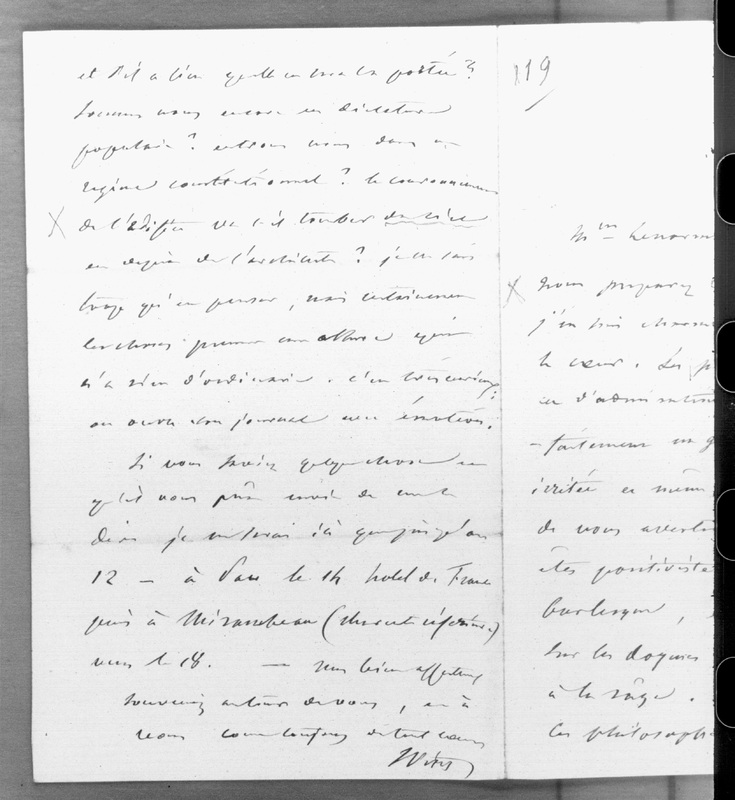 et s'il a bien
sommes nous encore en dictature
populaire ? entrons nous dans un
régime constitutionnel ? le couronnement
X de l'édifice va-t-il tomber du ciel
en dépit de l'architecte ? je ne sais
trop qu'en penser, mais certainement
les choses prennent une allure qui
n'a rien d'ordinaire. c'est très curieux,
on ouvre son journal avec émotion.
Si vous savez quelque chose
qu'il vous
dire je ne serai ici que jusqu'au
12 — à Pau le 14 hotel de France
puis à Mirambeau (charente inférieure)
vers le 18. — mes bien affectueux
souvenirs autour de vous, et à
vous comme toujours de tout coeur
Vitet
119
Mme Lenorm
X vous préparez
j'en suis
le coeur. Les p
et d'admiration
-faitement un g
irritée et même
de vous avertir
êtes positiviste
burlesque,
sur les dogmes
à la rage.
Ces philosoph